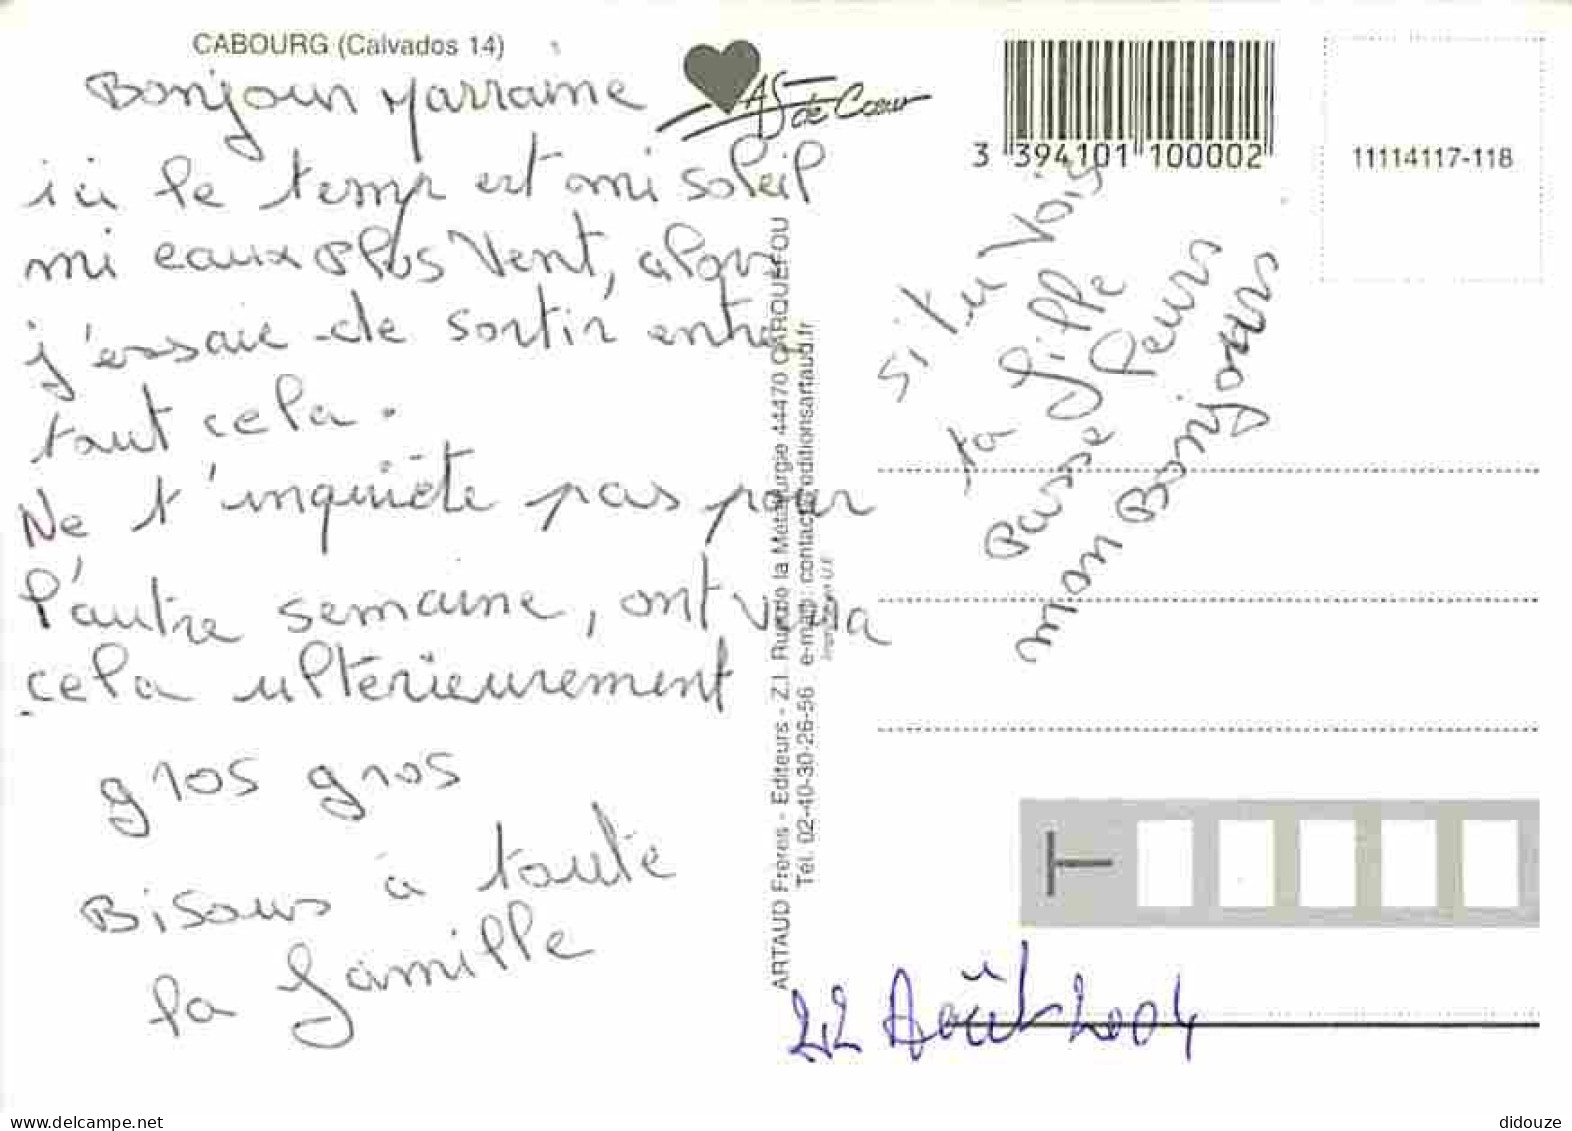 CABOURG (Calvados 14)
Bonjour Marraine
ici le temps est mi soleil
mi eaux plus Vent, alors
j'essaie de sortir entre
tout cela.
Ne t'inquiète pas pour
l'autre semaine, ont verra
cela ultérieurement
gros gros
Bisous à toute
la famille
As de Cœur
3 394101 100002
11114117-118
si tu Vois
ta fille
Passe leurs
mon Bonjours
ARTAUD Frères - Editeurs - Z.I. Rue de la Métallurgie 44470 CARQUEFOU
Tél. 02-40-30-26-56 e-mail : contact@editionsartaud.fr
22 Août 2004
delcampe.net
didouze